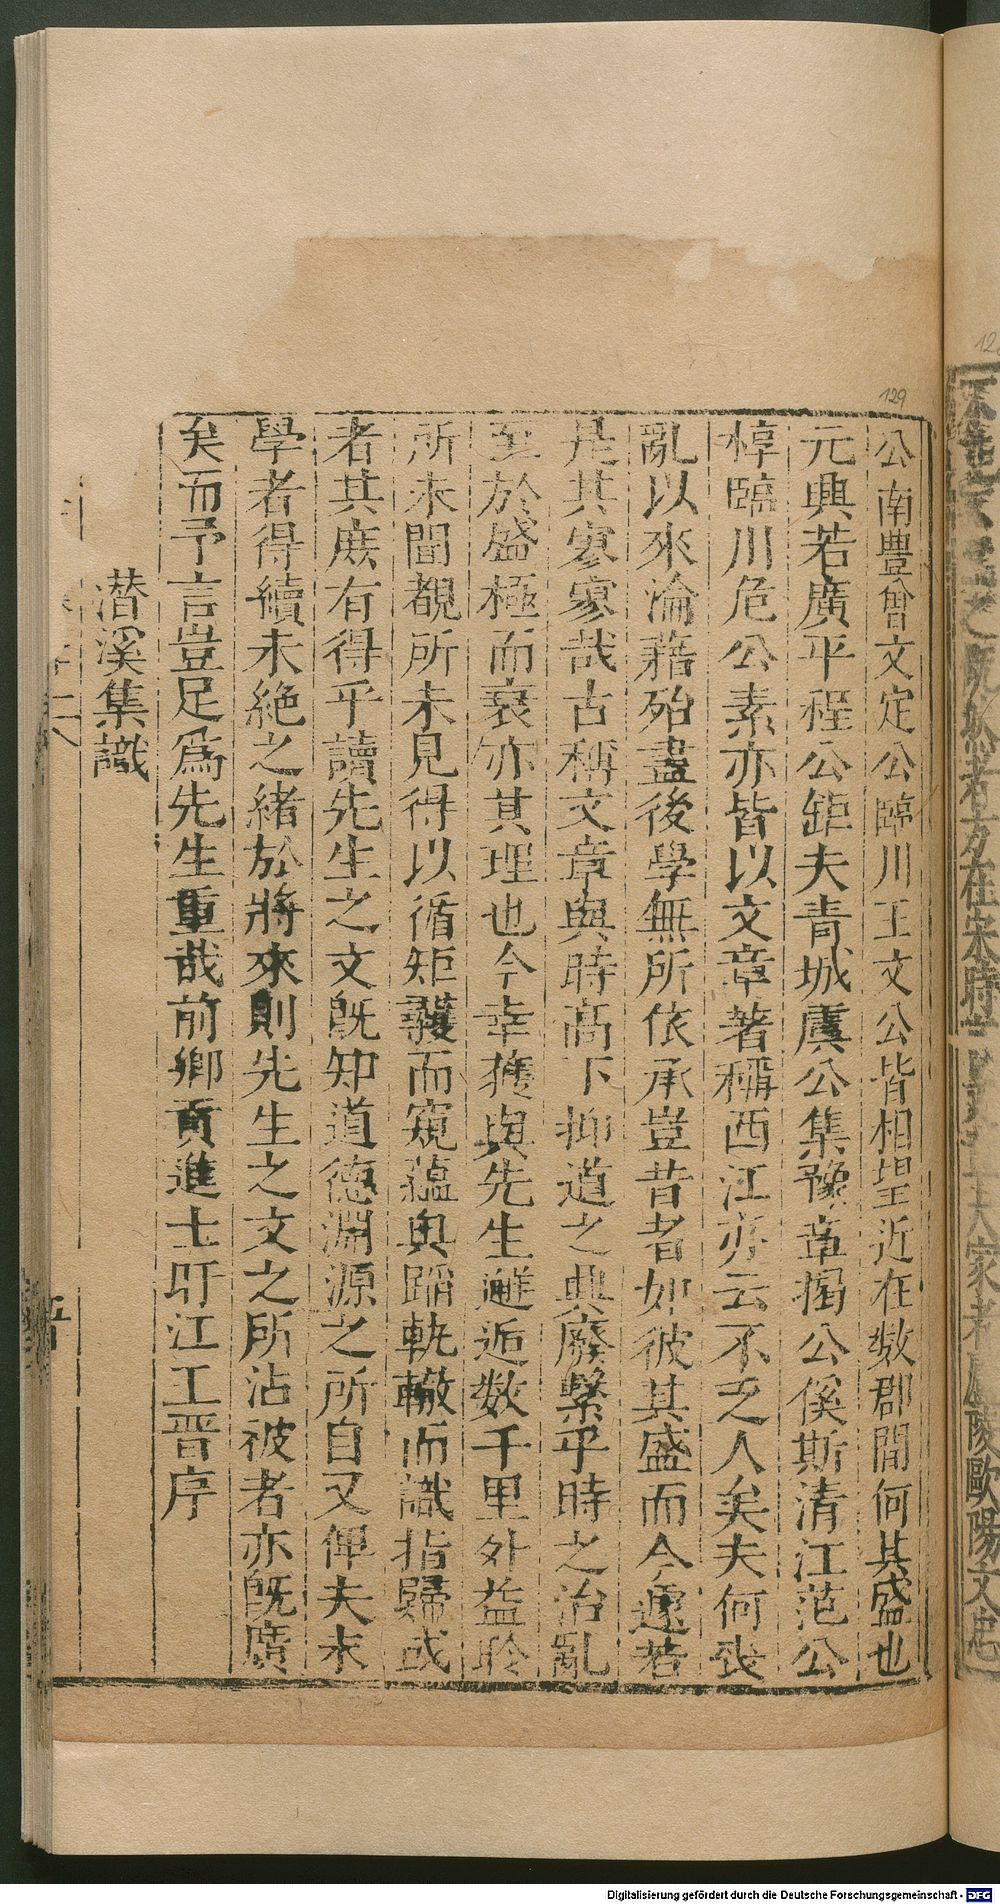 公南豊曾文定公臨川王文公皆相望近在数郡間何其盛也
元興若廣平程公鉅夫青城虞公集豫章揭公傒斯清江范公
梈臨川危公素亦皆以文章著稱西江亦云不乏人矣夫何丧
亂以來淪藉殆盡後學無所依承豈昔者如彼其盛而今遽若
是其寥寥哉古稱文章與時高下抑道之興廢繫乎時之治亂
至於盛極而衰亦其理也今幸獲與先生邂逅数千里外益聆
所未聞覩所未見得以循矩矱而窺蘊奥蹈軌轍而識指歸或
者其庻有得乎讀先生之文既知道德淵源之所自又俾夫末
學者得續未絶之緒於將來則先生之文之所沾被者亦既廣
矣而予言豈足爲先生重哉前鄉貢進士盱江王晋序
潜溪集識
129
Digitalisierung gefördert durch die Deutsche Forschungsgemeinschaft - DFG